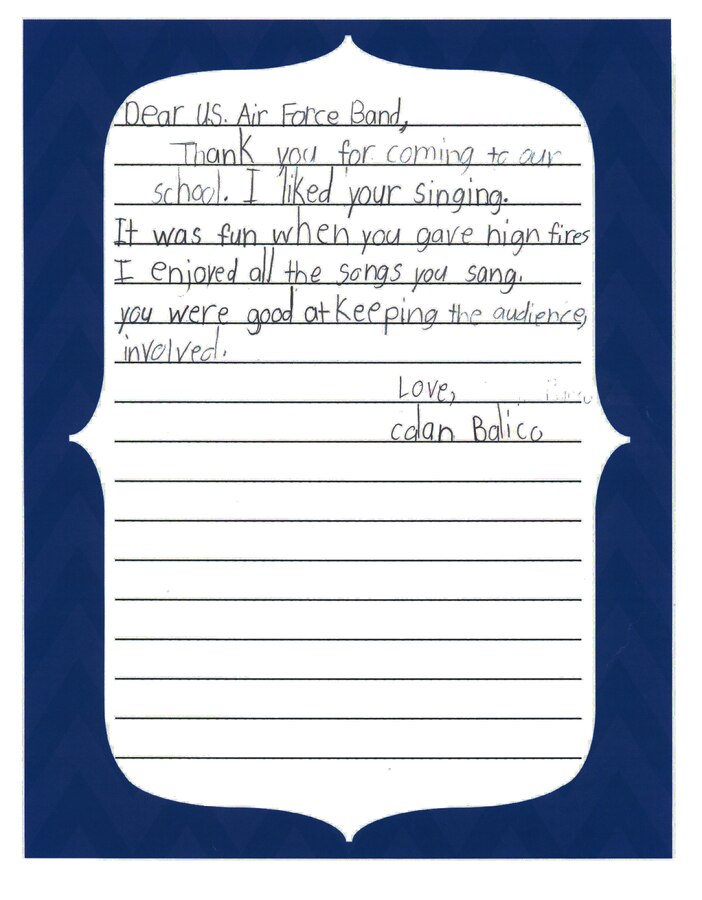 Dear U.S. Air Force Band,
Thank you for coming to our
school. I liked your singing.
It was fun when you gave high fives
I enjoyed all the songs you sang.
you were good at keeping the audience,
involved.
Love,
calan Balico